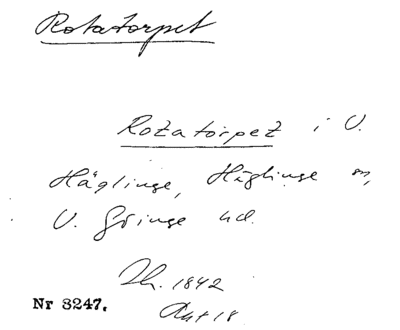 Rotatorpet
Rotatorpet i V.
Häglinge, Häglinge sn,
V. Göinge hd.
Lh. 1842
Akt 18
Nr 3247.